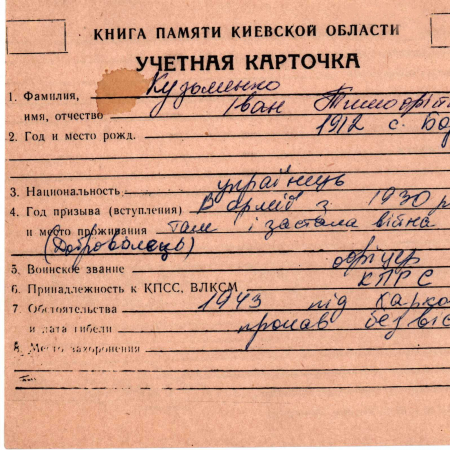 КНИГА ПАМЯТИ КИЕВСКОЙ ОБЛАСТИ
УЧЕТНАЯ КАРТОЧКА
1. Фамилия, Кузьменко
имя, отчество Іван Тимофій
2. Год и место рожд. 1912 с. Бор
3. Национальность українець
4. Год призыва (вступления) В армії з 1930 р
и место проживания там і застала війна
(Доброволець)
5. Воинское звание офіцер
6. Принадлежность к КПСС, ВЛКСМ КПРС
7. Обстоятельства 1943 під Харко
и дата гибели пропав безвіс
8. Место захоронения